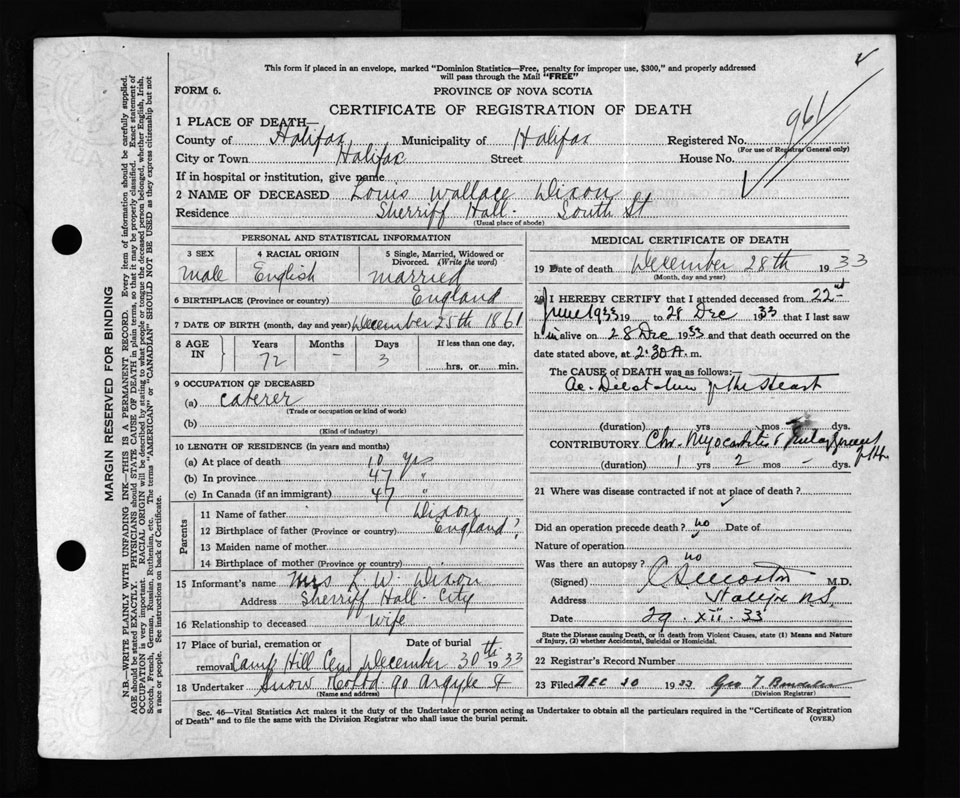 This form if placed in an envelope, marked "Dominion Statistics—Free, penalty for improper use, $300," and properly addressed
will pass through the Mail "FREE"
FORM 6.
PROVINCE OF NOVA SCOTIA
CERTIFICATE OF REGISTRATION OF DEATH
961
1 PLACE OF DEATH—
County of Halifax Municipality of Halifax Registered No.
(For use of Registrar General only)
City or Town Halifax Street House No.
If in hospital or institution, give name
2 NAME OF DECEASED Louis Wallace Dixon
Residence Sherriff Hall. South St
(Usual place of abode)
PERSONAL AND STATISTICAL INFORMATION
3 SEX 4 RACIAL ORIGIN 5 Single, Married, Widowed or
Divorced. (Write the word)
Male English Married
6 BIRTHPLACE (Province or country) England
7 DATE OF BIRTH (month, day and year) December 25th 1861
8 AGE IN Years Months Days If less than one day,
72 - 3 hrs. or min.
9 OCCUPATION OF DECEASED
(a) Caterer
(Trade or occupation or kind of work)
(b)
(Kind of industry)
10 LENGTH OF RESIDENCE (in years and months)
(a) At place of death 10 yrs
(b) In province 47 "
(c) In Canada (if an immigrant) 47 "
Parents
11 Name of father Dixon
12 Birthplace of father (Province or country) England?
13 Maiden name of mother
14 Birthplace of mother (Province or country)
15 Informant's name Mrs L. W. Dixon
Address Sherriff Hall. City
16 Relationship to deceased Wife
17 Place of burial, cremation or Date of burial
removal Camp Hill Cem December 30th 1933
18 Undertaker Snow & Co Ltd 90 Argyle St
(Name and address)
MEDICAL CERTIFICATE OF DEATH
19 Date of death December 28th 1933
(Month, day and year)
20 I HEREBY CERTIFY that I attended deceased from 22nd
June 1933 19 to 28 Dec 1933 that I last saw
him alive on 28 Dec 1933 and that death occurred on
date stated above, at 2:30 A. m.
The CAUSE OF DEATH was as follows:—
Ac. Dilatation of the Heart
(duration) yrs mos dys.
CONTRIBUTORY Chr. Myocarditis &
(duration) 1 yrs 2 mos - dys.
21 Where was disease contracted if not at place of death?
Did an operation precede death? no Date of
Nature of operation
Was there an autopsy? no
(Signed) M.D.
Address Halifax N.S.
Date 29. XII. 33
State the Disease causing Death, or in death from Violent Causes, state (1) Means and Nature
of Injury, (2) whether Accidental, Suicidal or Homicidal.
22 Registrar's Record Number
23 Filed DEC 30 1933 Geo T.
(Division Registrar)
Sec. 46—Vital Statistics Act makes it the duty of the Undertaker or person acting as Undertaker to obtain all the particulars required in the "Certificate of Registration
of Death" and to file the same with the Division Registrar who shall issue the burial permit.
(OVER)
MARGIN RESERVED FOR BINDING
N.B.—WRITE PLAINLY WITH UNFADING INK—THIS IS A PERMANENT RECORD. Every item of information should be carefully supplied.
AGE should be stated EXACTLY. PHYSICIANS should STATE CAUSE OF DEATH in plain terms, so that it may be properly classified. Exact statement of
OCCUPATION is very important. RACIAL ORIGIN will be described by stating to what people or tongue the deceased person belonged, whether English, Irish,
Scotch, French, German, Russian, Ruthenian, etc. The terms "AMERICAN" or "CANADIAN" SHOULD NOT BE USED as they express citizenship but not
a race or people. See instructions on back of Certificate.